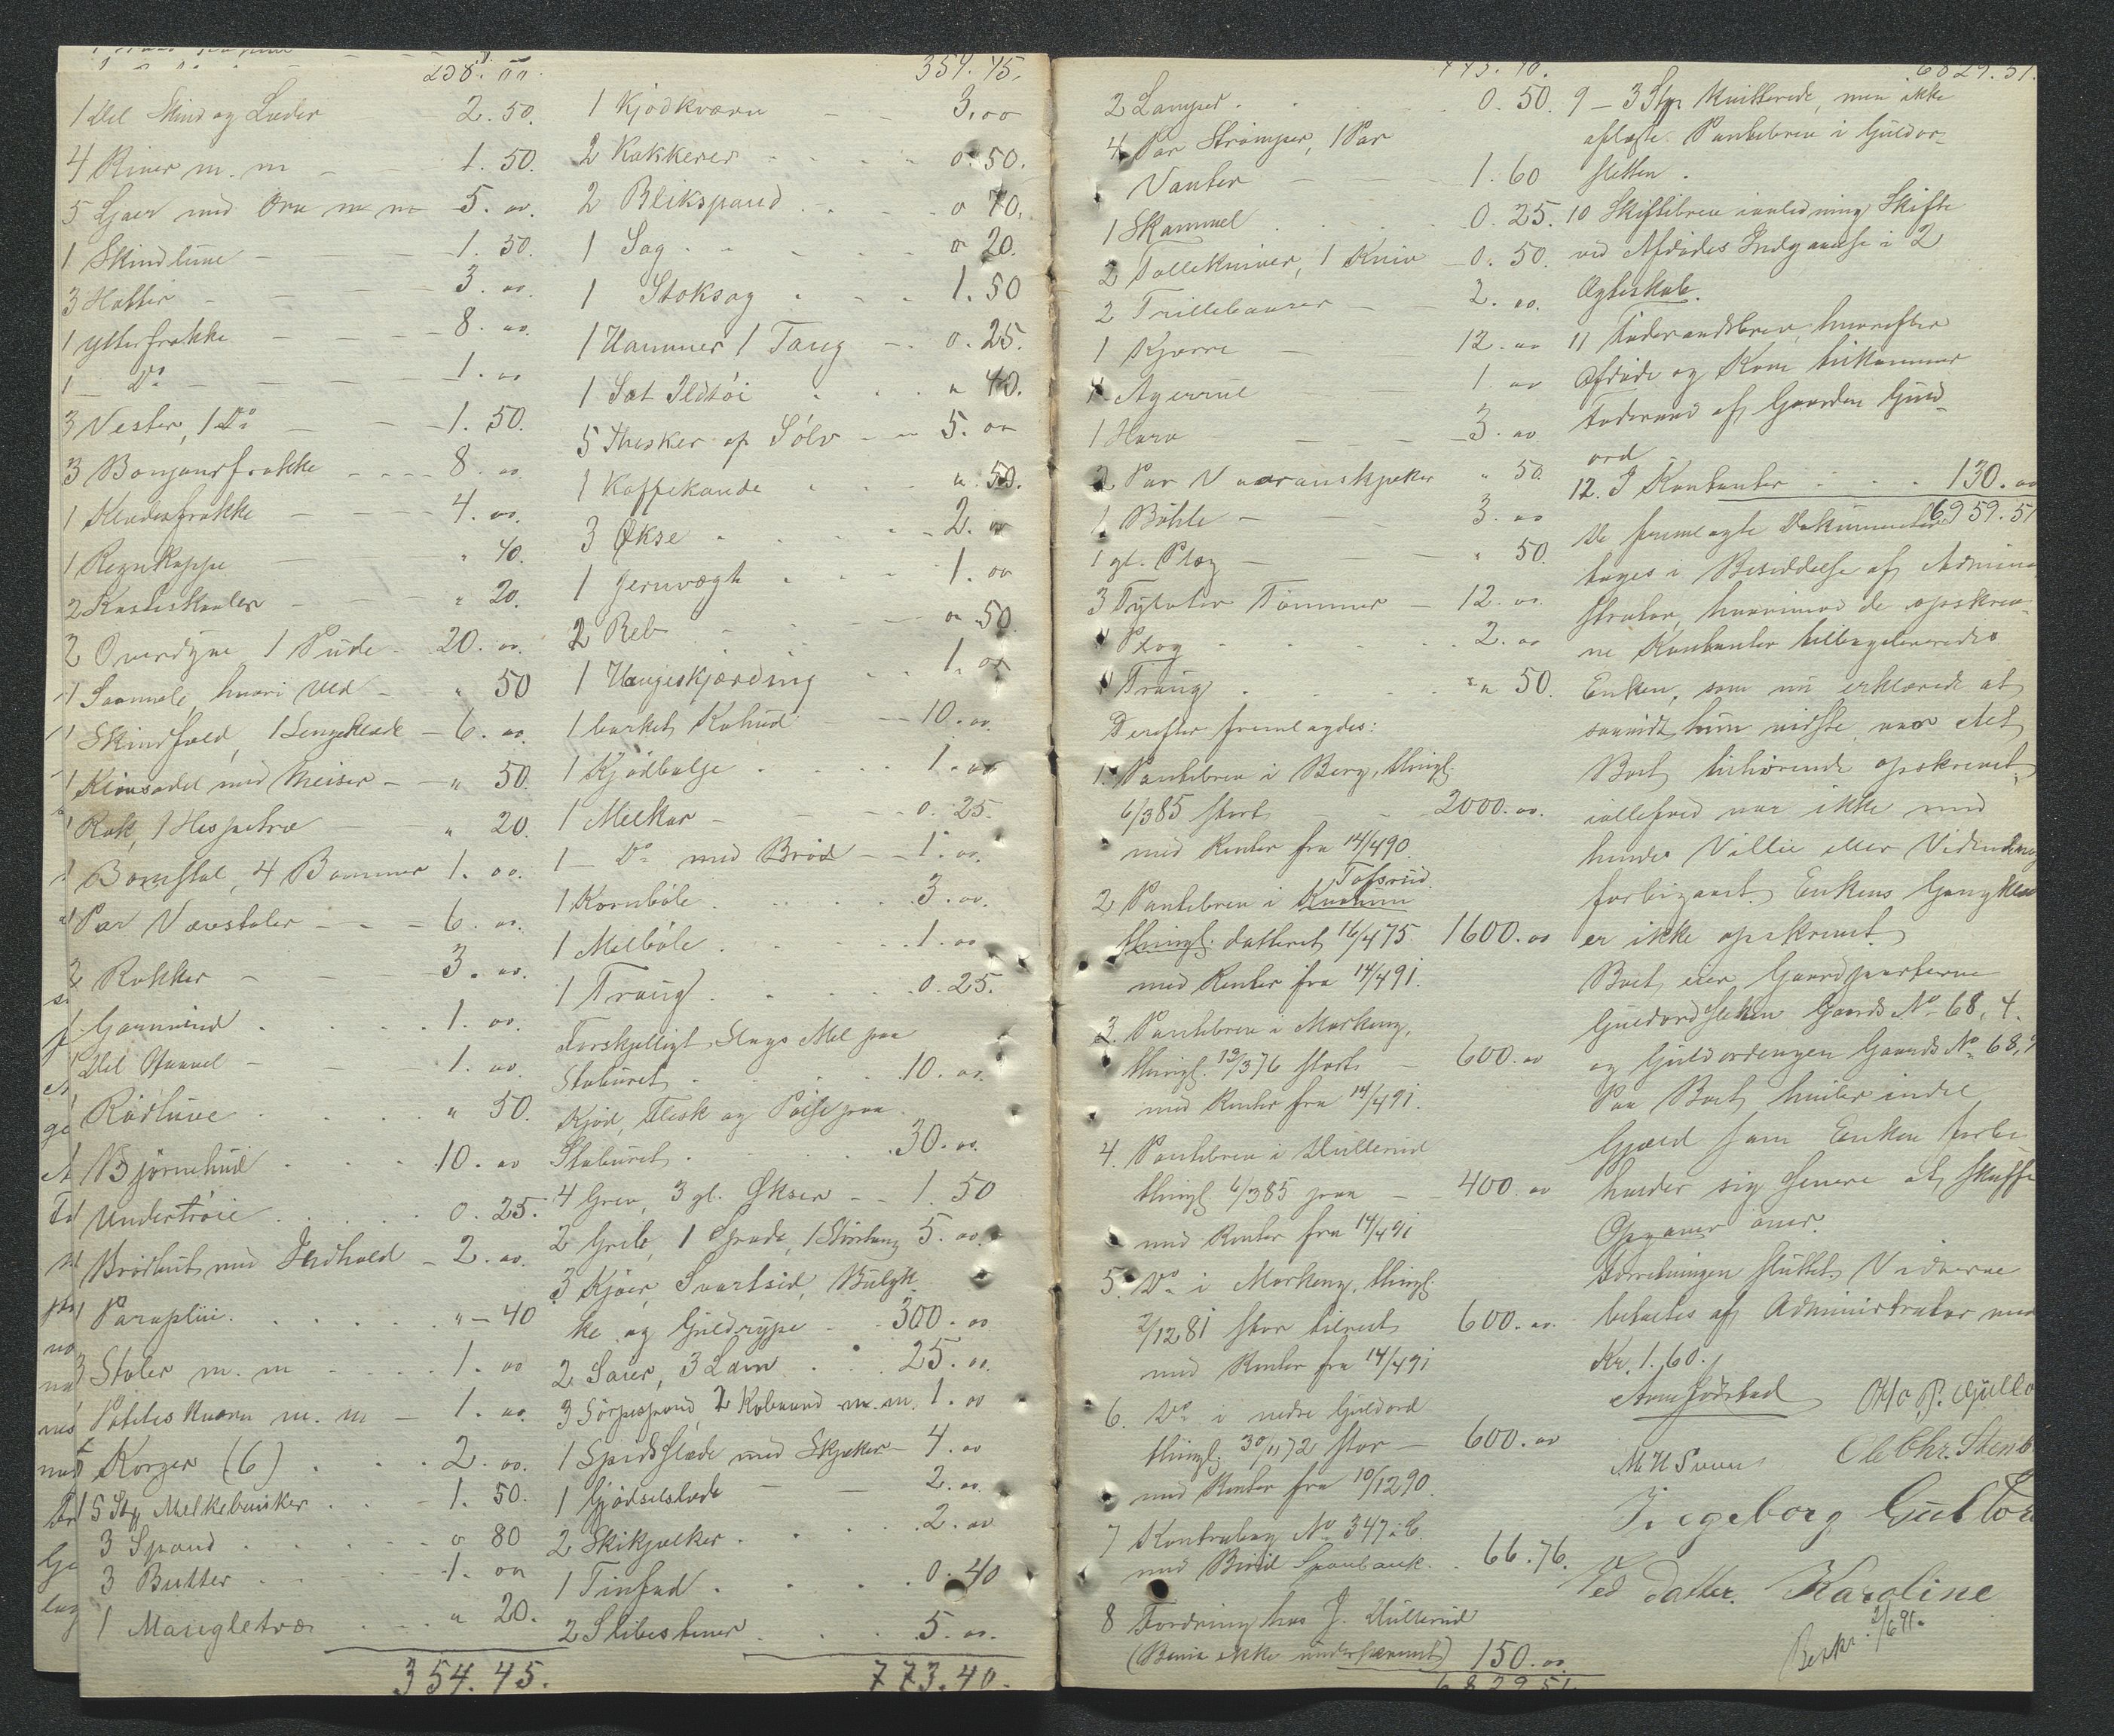 354.45.
1 Del Skind og Læder 2.50.
4 River m. m 1.50.
5 Ljaer med Orv m m 5. oo.
1 Skindlue 1.50.
3 Hatter 3. oo.
1 Ytterfrakke 8. oo.
1 Do 1. oo
3 Vester, 1 Do 1.50.
3 Bonjourfrakke 8. oo
1 Klædesfrakke 4. oo.
1 Regnkappe " 40.
2 " 20.
2 Overdyne 1 Pude 20. oo.
1 hvori Ved " 50
1 Skindfæld, 1 Sengeklæde 6. oo.
1 Kløvsadel med Meiser " 50.
1 Rok, 1 Hespetræ " 20.
1 Bomstol, 4 Bommer 1. oo.
1 Par Vævstoler 6. oo.
2 Rokker 3. oo.
1 Garnvind 1. oo.
1 Del 1. oo.
1 " 50.
1 Bjørnehud 10. oo
1 Undertrøie 0.25.
1 med Indhold 2. oo.
1 Paraplui " 40
3 Stoler m. m 1. oo
1 Potteskværn m. m 1. oo.
Korger (6) 2. oo.
5 Styk Melkebunker 1.50.
3 Spand o 80
3 Butter 1. oo
1 Mangletræ " 20.
354.45.
1 Kjødkværn 3,oo
2 Kakkerer o.50.
2 Blikspand o 70.
1 Sag o 20.
1 Stoksag 1.50
1 Hammer 1 Tang 0.25.
1 Sæt Ildtøi " 40.
5 Theskeer af Sølv 5. oo
1 Kaffekande " 50.
3 Økse 2. oo
1 Jernvægt 1. oo
2 Reb " 50
1 1. oo
1 barket Kohud 10. oo.
1 Kjødbalje 1. oo
1 Melkar 0.25.
1 Do med Brød 1. oo.
1 Kornbøle 3. oo.
1 Melbøle 1. oo
1 Traug 0.25.
Forskjelligt Slags Mel paa
Staburet 10. oo.
Kjød, Flesk og Pølse paa
Staburet 30. oo.
4 Grev, 3 gl. Økser 1.50
2 Greb, 1 Spade, 1 5. oo.
3 Kjøer, Svartsid,
ke og Guldrype 300. oo
2 Sauer, 3 Lam 25. oo.
3 Sørpespand, 2 m. m. 1. oo
1 Spidsslæde med Skjæker 4. oo
1 Gjødselslæde 2. oo.
2 Skikjælker 2. oo
1 Tinfad 0.40
2 Slibestener 5. oo.
773.40.
773.40.
2 Lamper 0.50.
4 Par Strømper, 1 Par
Vanter 1.60
1 Skammel 0.25.
2 Tollekniver, 1 Kniv 0.50.
2 Trillebaarer 2. oo.
1 Kjærre 12. oo
1 1. oo
1 Harv 3. oo
2 Par Vaaronskjæker " 50.
1 Bøhle 3. oo
1 gl. Plog " 50.
3 Tylvter Tømmer 12. oo.
1 Plog 2. oo
1 Traug " 50.
Derefter fremlagdes:
1. Pantebrev i Berg, thingl.
6/3 85 stort 2000. oo.
med Renter fra 14/4 90.
Tofsrud.
2 Pantebrev i
thingl. datteret 16/4 75 1600. oo
med Renter fra 14/4 91.
3. Pantebrev i Morkeng,
thingl. 13/3 76 stort 600. oo
med Renter fra 14/4 91.
4. Pantebrev i Hullerud
thingl. 6/3 85 paa 400. oo
med Renter fra 14/4 91
5. Do i Morkeng, thingl.
2/12 81 stor tilrest 600. oo.
med Renter fra 14/4 91
6. Do i nedre Guldord
thingl. 30/11 72 stor 600. oo
med Renter fra 10/12 90.
7 Kontrabog No 347
med Sparebank 66.76.
8 Fordring hos J. Hullerud
(Bevis ikke underskrevet) 150. oo
6829.51.
6829.51.
9 – 3 Styk kvitterede, men ikke
aflæste Pantebreve i Guldor-
sletten.
10 Skiftebrev i anledning Skifte
ved Afdødes Indgaaelse i 2
Ægteskab.
11 Føderaadsbrev, hvorefter
Afdøde og Kone tilkommer
Føderaad af Gaarden Guld-
ord
12. I Kontanter 130. oo
6959.51
De fremlagte Dokumenter
toges i Besiddelse af Admini
strator, hvorimod de opskrev-
ne Kontanter tilbageleveredes
Enken, som nu erklærede at
saavidt hun vidste var Alt
Boet tilhørende opskrevet,
ialfald var ikke med
hendes Villie eller Vidende
forbigaaet. Enkens Gangklæ
er ikke opskrevet.
Boet eier Gaardparterne
Guldordsletten Gaards No 68, 4.
og Guldordengen Gaards No 68,
Paa Boet hviler endel
Gjæld som Enken forbe
holder sig senere at skaffe
Opgaver over.
Forretningen sluttet. Vidnerne
betaltes af Administrator med
Kr. 1.60.
Arne Jødstad Otto P. Gullo
M. H. Ole Chr. Stenb
Ingeborg Gulor
Ved datter. Karoline
2/6 91.